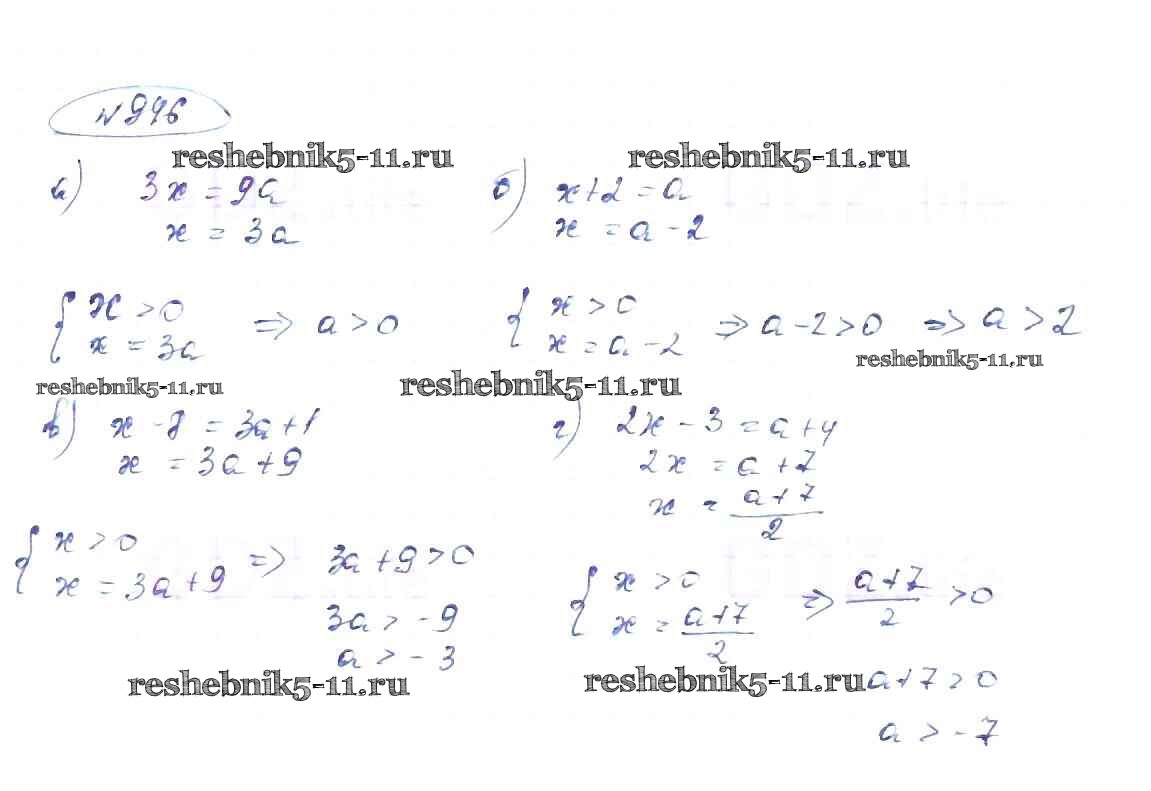 №946
reshebnik5-11.ru reshebnik5-11.ru
а) 3x = 9a
x = 3a
б) x+2 = a
x = a - 2
{ x > 0
x = 3a
=> a > 0
{ x > 0
x = a - 2
=> a - 2 > 0 => a > 2
reshebnik5-11.ru
reshebnik5-11.ru reshebnik5-11.ru
в) x - 8 = 3a+1
x = 3a+9
г) 2x - 3 = a+4
2x = a+7
x = a+7/2
{ x > 0
x = 3a+9
=> 3a+9 > 0
3a > -9
a > -3
{ x > 0
x = a+7/2
=> a+7/2 > 0
reshebnik5-11.ru reshebnik5-11.ru
a+7 > 0
a > -7